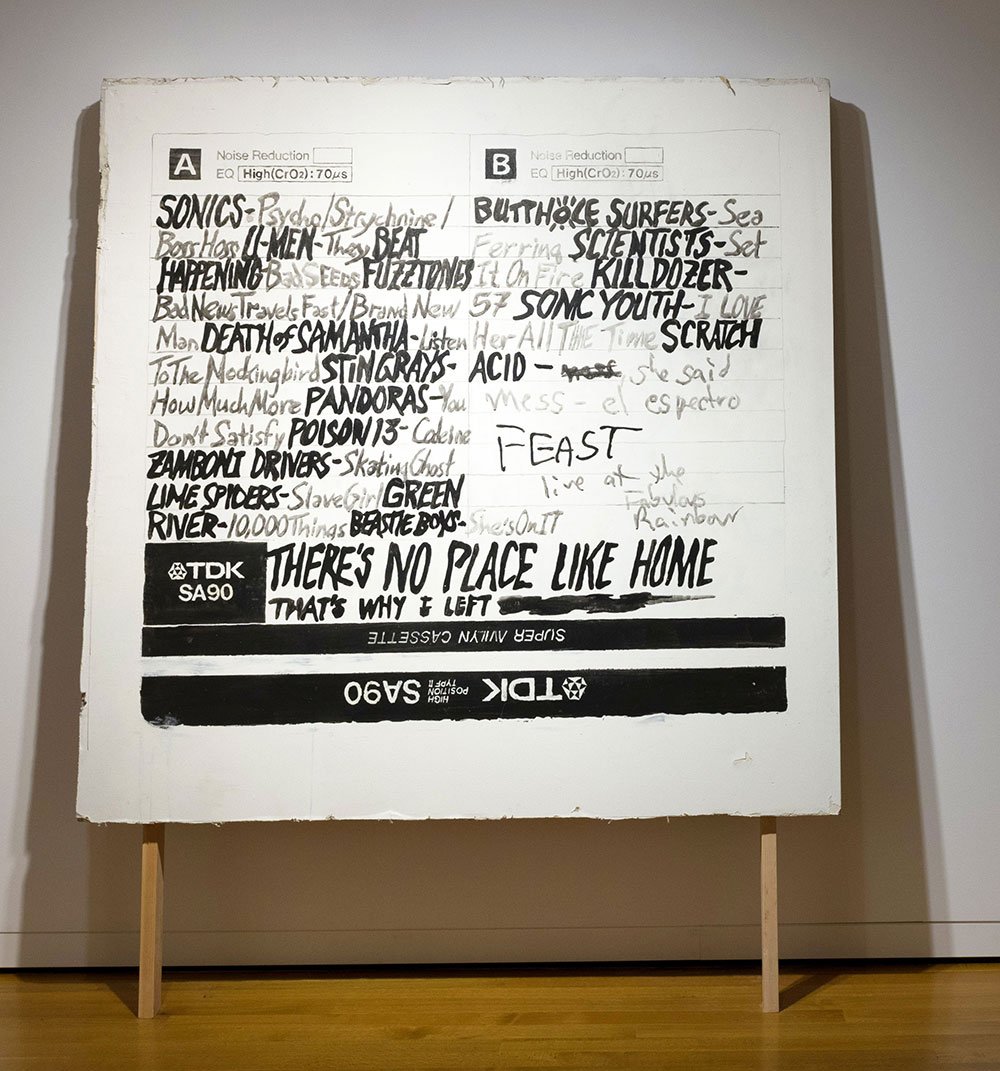 A Noise Reduction
EQ High(CrO2): 70μs
SONICS-Psycho/Strychnine/
Boss Hoss U-MEN-They BEAT
HAPPENING-Bad SEEDS FUZZTONES
Bad News Travels Fast/Brand New
Man DEATH of SAMANTHA-Listen
To The Mockingbird STINGRAYS-
How Much More PANDORAS-You
Don't Satisfy POISON 13-Codeine
ZAMBONI DRIVERS-Skating Ghost
LIME SPIDERS-Slave Girl GREEN
RIVER-10,000 Things BEASTIE BOYS-She's On IT
B Noise Reduction
EQ High(CrO2): 70μs
BUTTHOLE SURFERS-Sea
Ferring SCIENTISTS-Set
It On Fire KILLDOZER-
57 SONIC YOUTH-I LOVE
Her All THE Time SCRATCH
ACID - she said
mess - el espectro
FEAST
live at the
Fabulous
Rainbow
TDK
SA90
THERE'S NO PLACE LIKE HOME
THAT'S WHY I LEFT
SUPER AVILYN CASSETTE
TDK HIGH POSITION TYPE II SA90